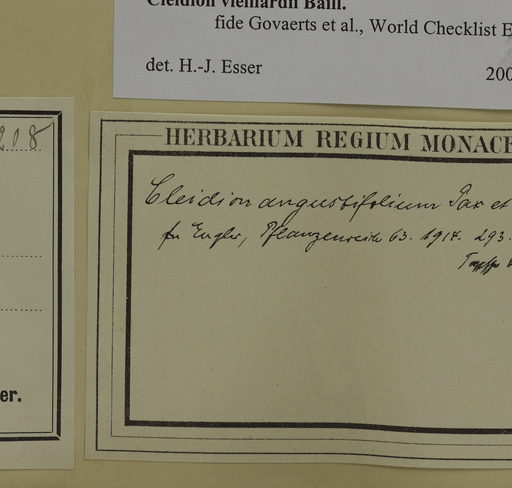 Cleidion vieillardii Baill.
fide Govaerts et al., World Checklist E
det. H.-J. Esser 200
208
er.
HERBARIUM REGIUM MONACE
Cleidion angustifolium Pax et
in Engler, Pflanzenreich 63. 1914. 293.